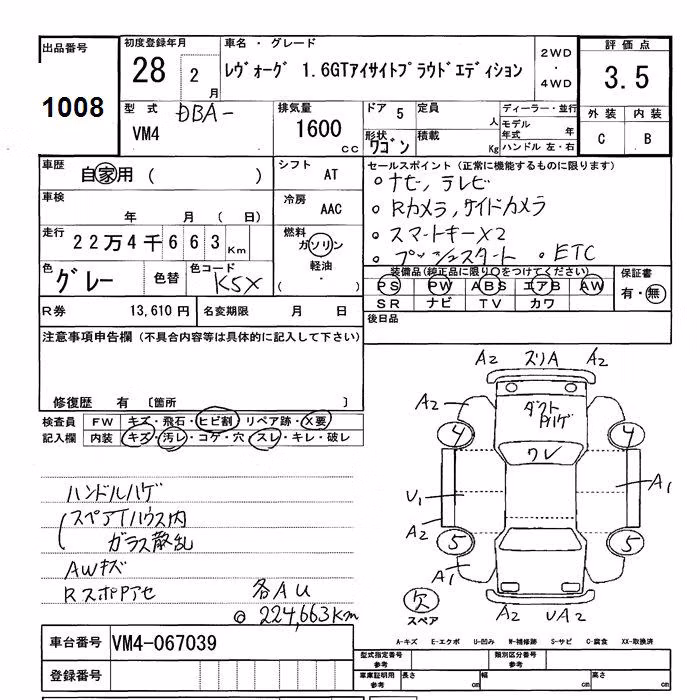 出品番号
1008
初度登録年月
28 2 月
車名・グレード
ﾚｳﾞｫｰｸﾞ 1.6GTｱｲｻｲﾄﾌﾟﾗｳﾄﾞｴﾃﾞｨｼｮﾝ
2WD
・
4WD
評価点
3.5
外装 内装
C B
型式 DBA-
VM4
排気量
1600 cc
ドア 5
形状 ワゴン
定員 人
積載 Kg
ディーラー・並行
モデル
年式 年
ハンドル 左・右
車歴 自家用 ( )
シフト AT
車検 年 月 (日)
冷房 AAC
走行 22万4千663Km
燃料
ガソリン
軽油
・
( )
色 グレー 色替 色コード K5X
R券 13,610円 名変期限 月 日
セールスポイント (正常に機能するものに限ります)
。ナビ,テレビ
。Rカメラ,サイドカメラ
。スマートキーX2
。プッシュスタート 。ETC
装備品(純正品に限り○をつけてください)
PS PW ABS エアB AW
SR ナビ TV カワ
保証書
有・無
後日品
注意事項申告欄 (不具合内容等は具体的に記入して下さい)
修復歴 有 〔箇所 〕
検査員 FW キズ・飛石・ヒビ割・リペア跡・X要
記入欄 内装 キズ・汚レ・コゲ・穴・スレ・キレ・破レ
ハンドルハゲ
スペアTハウス内
ガラス散乱
AWキズ
RスポPアセ 各AU
@ 224,663Km
A2 スリA A2
A2
ダクト
Pハゲ
4 4
ワレ
U1 A1
A2
5 5
A1
欠
スペア
A2 UA2
車台番号 VM4-067039
登録番号
A-キズ E-エクボ U-凹み W-補修跡 S-サビ C-腐食 XX-取換済
型式指定番号
参考
類別区分番号
参考
車庫証明用
参考
長さ cm 幅 cm 高さ cm